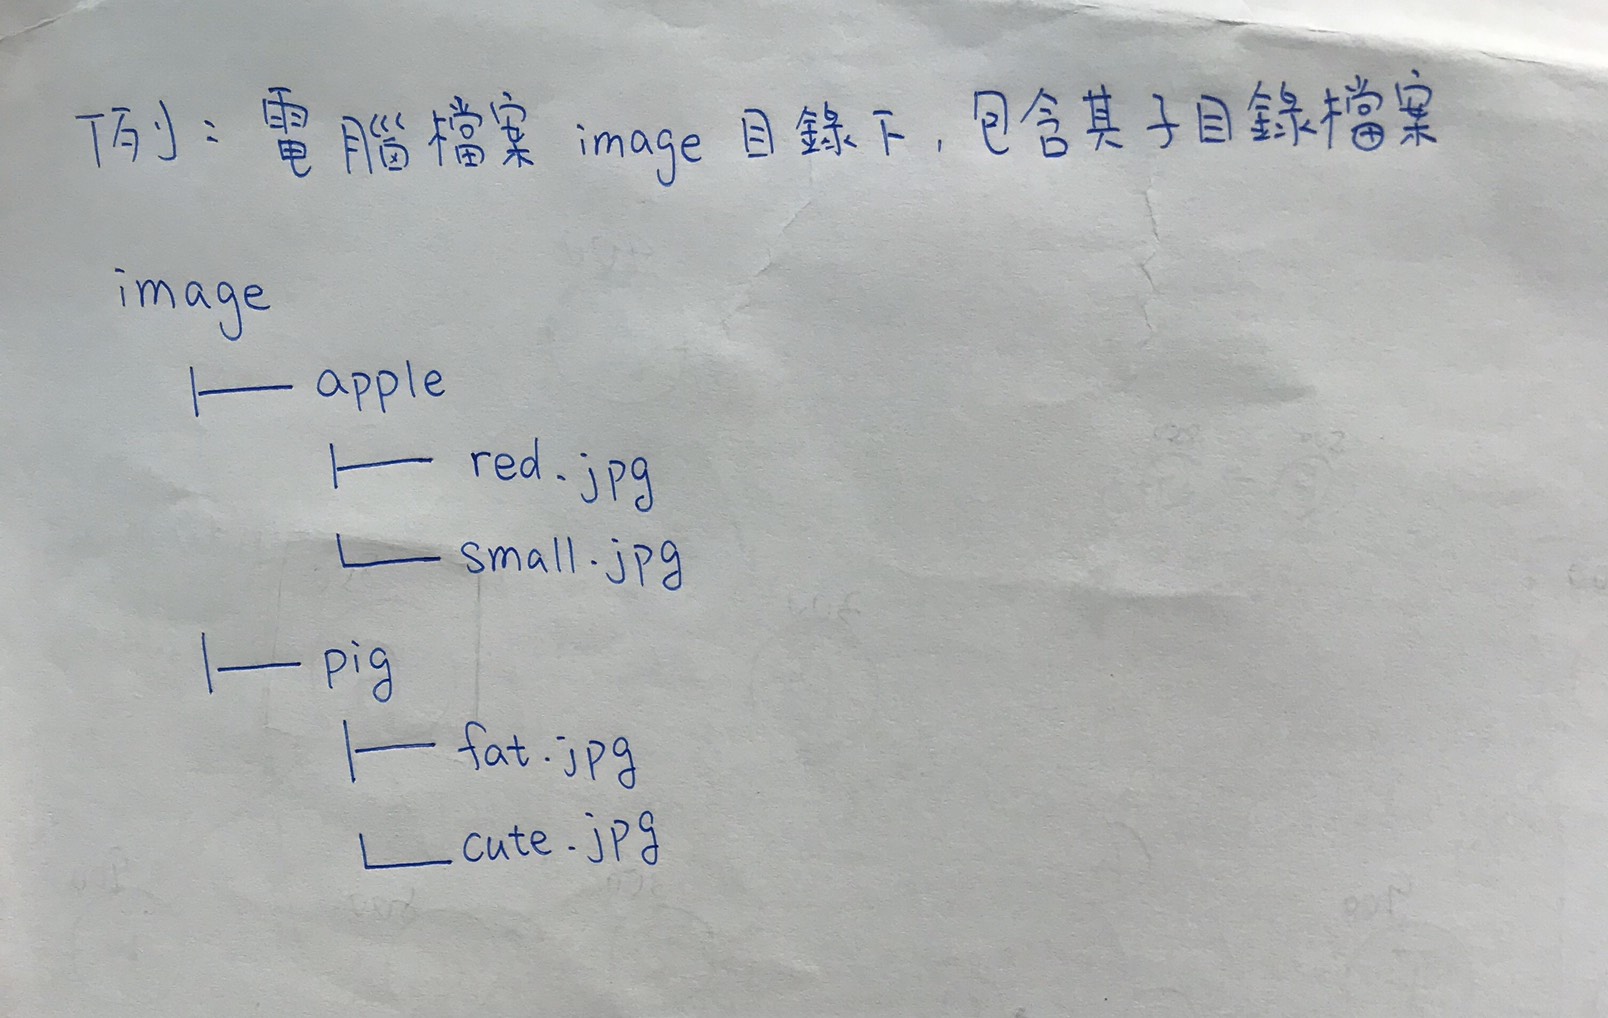 例：電腦檔案 image 目錄下，包含其子目錄檔案
image
├── apple
├── red.jpg
└── small.jpg
├── pig
├── fat.jpg
└── cute.jpg